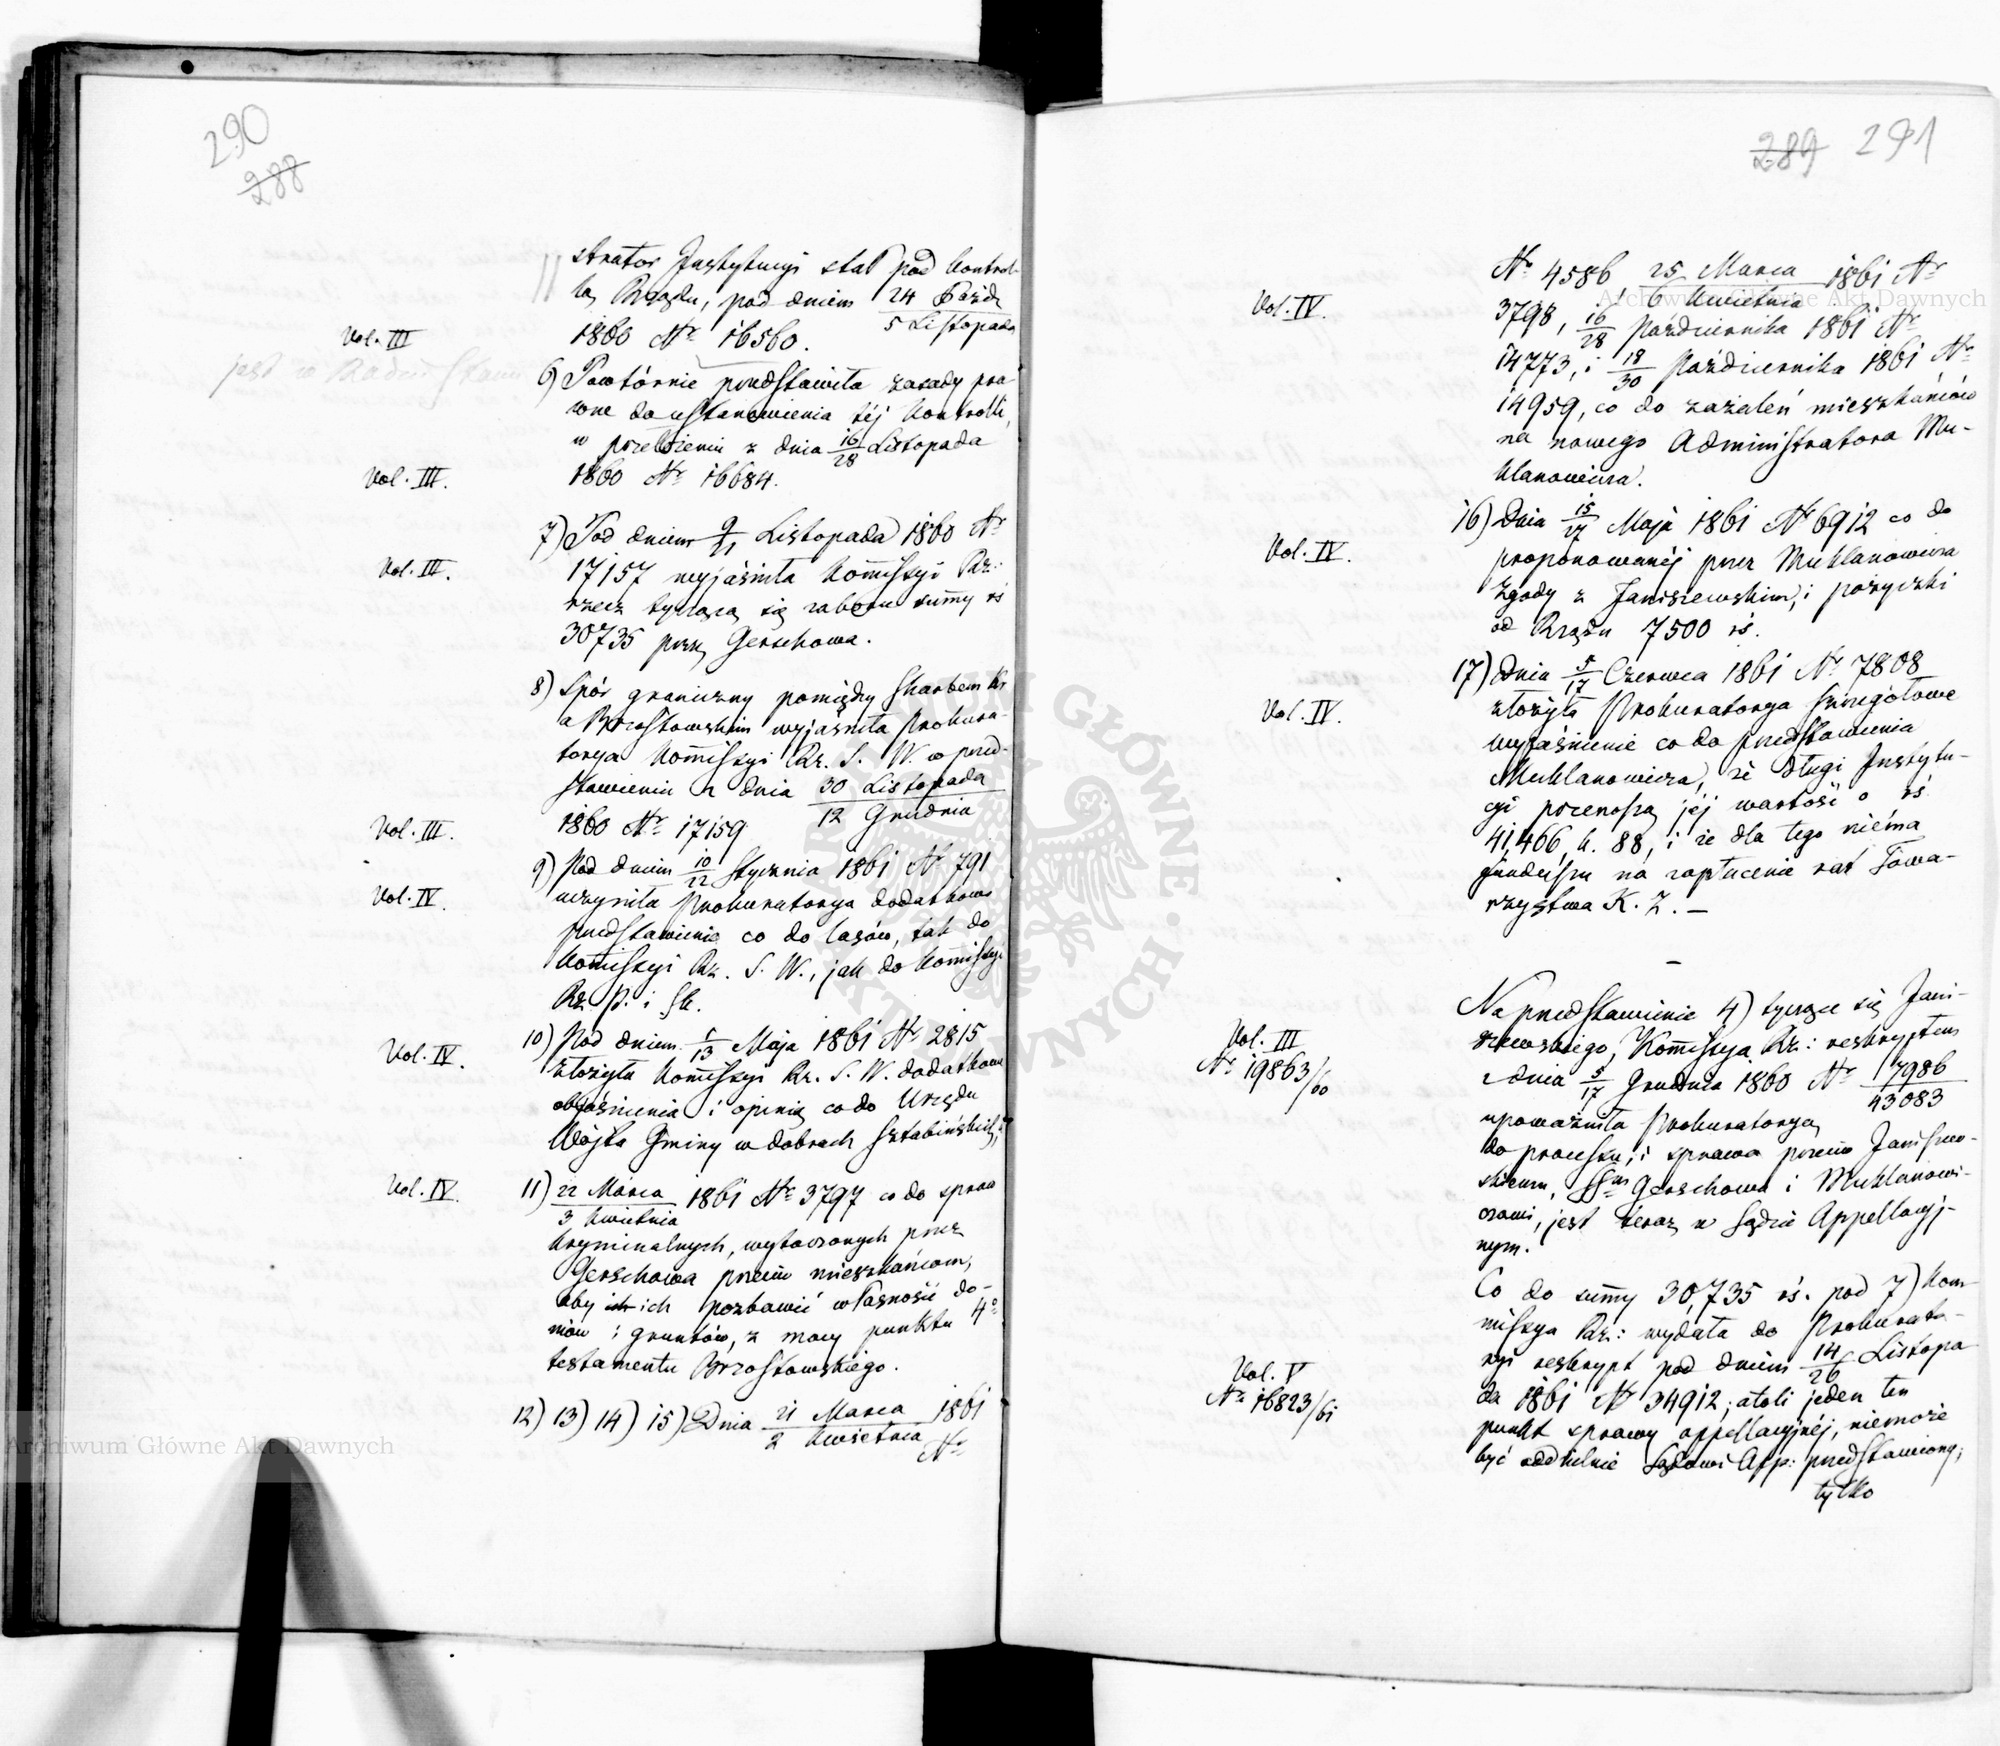 290
288
strator Instytucyi stał pod kontrol-
lą Rządu, pod dniem 24 Paźdz / 5 Listopada
Vol. III
1860 Nr 16560.
jest w Radzie Stanu
6) Powtórnie przedstawiła zasady pra-
wne do ustanowienia téj kontrolli,
w przełożeniu z dnia 16/28 Listopada
Vol. III.
1860 Nr 16684.
7) Pod dniem 9/21 Listopada 1860 Nr
Vol. III.
17157 wyjaśniła Kommissyi Rz:
rzecz tyczącą się zaboru summy rs
30735 przez Gerschowa.
8) Spór graniczny pomiędzy Skarbem Kr
a Brzostowskim wyjaśniła Prokura-
torya Kommissyi Rz. S. W. w przed-
stawieniu z dnia 30 Listopada / 12 Grudnia
Vol. III.
1860 Nr 17159.
9) Pod dniem 10/22 Stycznia 1861 Nr 791
Vol. IV.
uczyniła Prokuratorya dodatkowe
przedstawienie co do lasów, tak do
Kommissyi Rz. S. W., jak do Kommissyi
Rz. P. i Sk.
10) Pod dniem 1/13 Maja 1861 Nr 2815
Vol. IV.
złożyła Kommissyi Rz. S. W. dodatkowe
objaśnienia i opinię co do Urzędu
Wójta Gminy w dobrach Sztabińskich,
Vol. IV.
11) 22 Marca / 3 Kwietnia 1861 Nr 3797 co do spraw
kryminalnych, wytoczonych przez
Gerschowa przeciw mieszkańcom,
aby ich ich pozbawić własności do-
mów i gruntów, z mocy punktu 4o
testamentu Brzostowskiego.
12) 13) 14) 15) Dnia 21 Marca / 2 Kwietnia 1861
Nr
289 291
Nr 4586 25 Marca / 6 Kwietnia 1861 Nr
Vol. IV.
3798, 16/28 Października 1861 Nr
14773, i 18/30 Października 1861 Nr
14959, co do zażaleń mieszkańców
na nowego Administratora Mu-
klanowicza.
16) Dnia 15/27 Maja 1861 Nr 6912 co do
Vol. IV.
proponowanéj przez Muklanowicza
zgody z Janiszewskim, i pożyczki
od Rządu 7500 rs.
17) Dnia 5/17 Czerwca 1861 Nr 7808
Vol. IV.
złożyła Prokuratorya szczegółowe
wyjaśnienie co do przedstawienia
Muklanowicza, że długi Instytu-
cyi przenoszą jéj wartość o rs
41,466, k. 88, i że dla tego niéma
funduszu na zapłacenie rat Towa-
rzystwa K. Z. —
—
Na przedstawienie 4) tyczące się Jani-
Vol. III
szewskiego, Kommissya Rz: reskryptem
Nr 19863/60
z dnia 5/17 Grudnia 1860 Nr 7986 / 43083
upoważniła Prokuratoryą
do processu, i sprawa przeciw Janiszew-
skiemu, Gerschowa i Muklanowi-
czowi, jest teraz w Sądzie Appellacyj-
nym.
Co do summy 30,735 rs. pod 7) Kom-
missya Rz: wydała do Prokurato-
ryi reskrypt pod dniem 14/26 Listopa
Vol. V
Nr 16823/61
da 1861 Nr 34912; atoli jeden ten
punkt sprawy appellacyjnéj, niemoże
być oddzielnie Sądowi App: przedstawiony;
tylko
Archiwum Główne Akt Dawnych
Archiwum Główne Akt Dawnych
ARCHIWUM GŁÓWNE AKT DAWNYCH